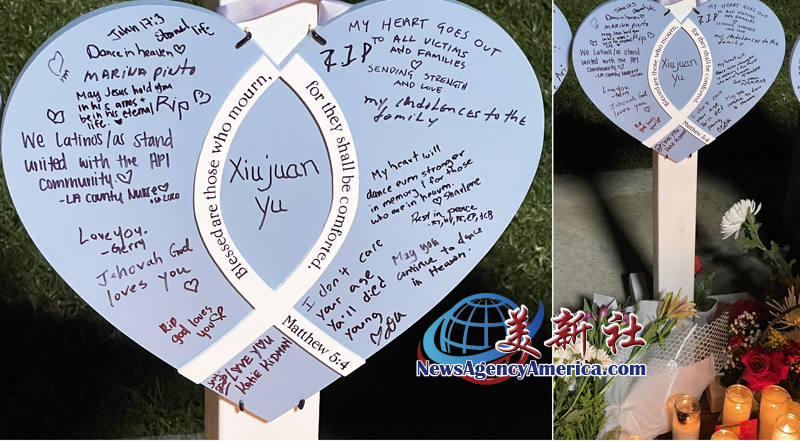 John 17:3
Eternal life
Dance in heaven
MARINA PINTO
May Jesus hold you
in his arms +
be in his eternal
life.
Rip
We Latinos/as stand
united with the API
Community
-LA County Nurse
Love you.
-Gerry
Jehovah God
loves you
Rip
god loves
you
LOVE YOU
KATIE KIDMAN
Blessed are those who mourn,
for they shall be comforted.
Matthew 5:4
Xiujuan
Yu
MY HEART GOES OUT
TO ALL VICTIMS
AND FAMILIES
SENDING STRENGTH
AND LOVE
RIP
my Condolences to the
family
My heart will
dance even stronger
in memory for those
who are in heaven.
Rest in peace
May you
continue to dance
in Heaven.
I don't care
your age
Ya'll died
young
美新社
NewsAgencyAmerica.com
Xiujuan
Yu
Blessed are those who mourn,
for they shall be comforted.
Matthew 5:4